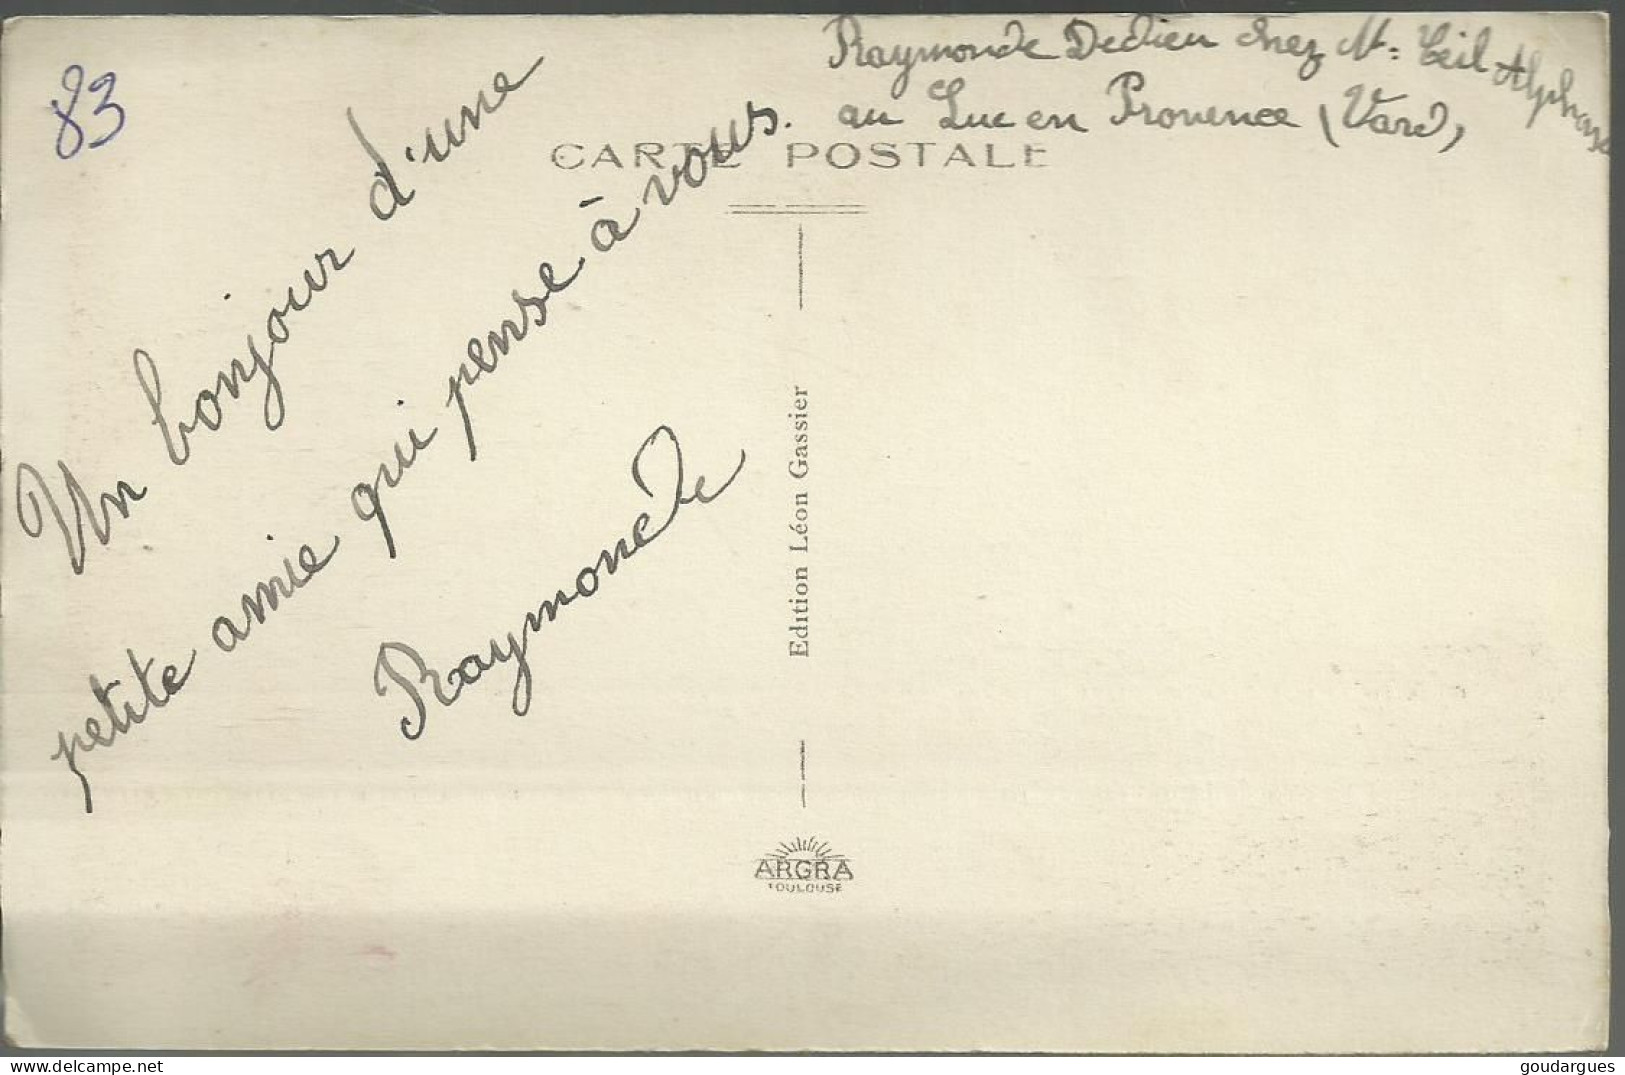 83
Raymonde Dedieu chez Mr: Teil Alphonse
au Luc en Provence (Var),
CARTE POSTALE
Un bonjour d'une
petite amie qui pense à vous.
Raymonde
Edition Léon Gassier
ARGRA
TOULOUSE
www.delcampe.net
goudargues